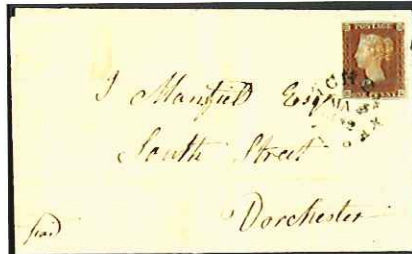 POSTAGE
J Manfield Esqr
South Street
Dorchester
paid